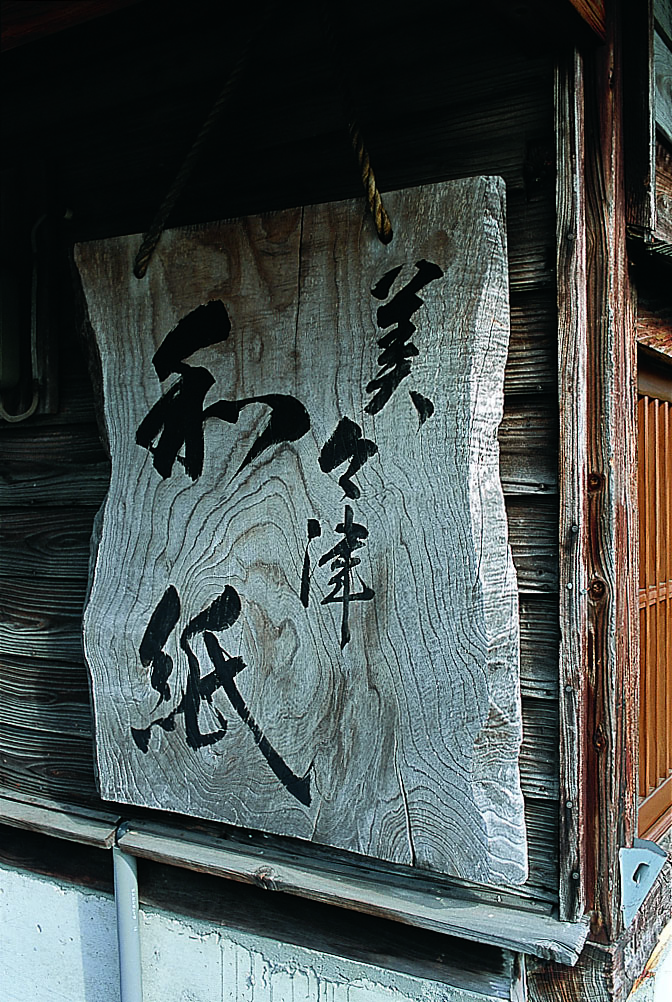 美々津
和紙